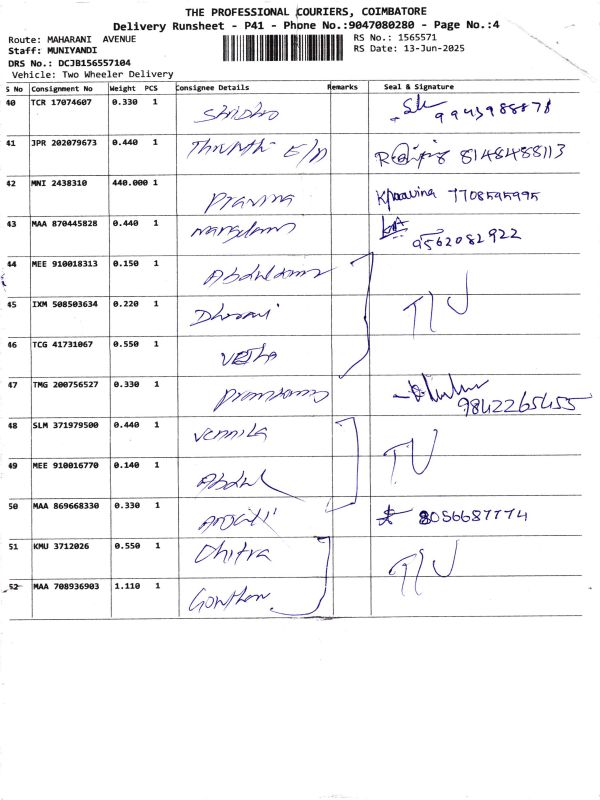 THE PROFESSIONAL COURIERS, COIMBATORE
Delivery Runsheet - P41 - Phone No.:9047080280 - Page No.:4
Route: MAHARANI AVENUE RS No.: 1565571
Staff: MUNIYANDI RS Date: 13-Jun-2025
DRS No.: DCJB156557104
Vehicle: Two Wheeler Delivery
S No Consignment No Weight PCS Consignee Details Remarks Seal & Signature
40 TCR 17074607 0.330 1
41 JPR 202079673 0.440 1 8148488113
42 MNI 2438310 440.000 1 Pravina 7708595995
43 MAA 870445828 0.440 1 9562082922
44 MEE 910018313 0.150 1
45 IXM 508503634 0.220 1 Dharani
46 TCG 41731067 0.550 1
47 TMG 200756527 0.330 1 9842265455
48 SLM 371979500 0.440 1 Vennila
49 MEE 910016770 0.140 1 Abdul
50 MAA 869668330 0.330 1 8056687774
51 KMU 3712026 0.550 1 Chitra
52 MAA 708936903 1.110 1